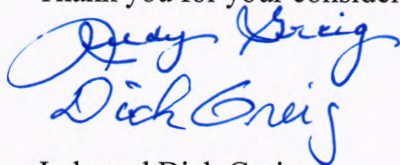 Thank you for your consider
Judy Greig
Dick Greig
Judy and Dick Greig